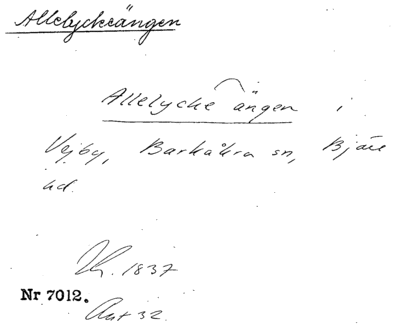 Allelyckeängen
Allelycke ängen i
Vejby, Barkåkra sn, Bjäre
hd.
1837
Nr 7012.
Akt 32